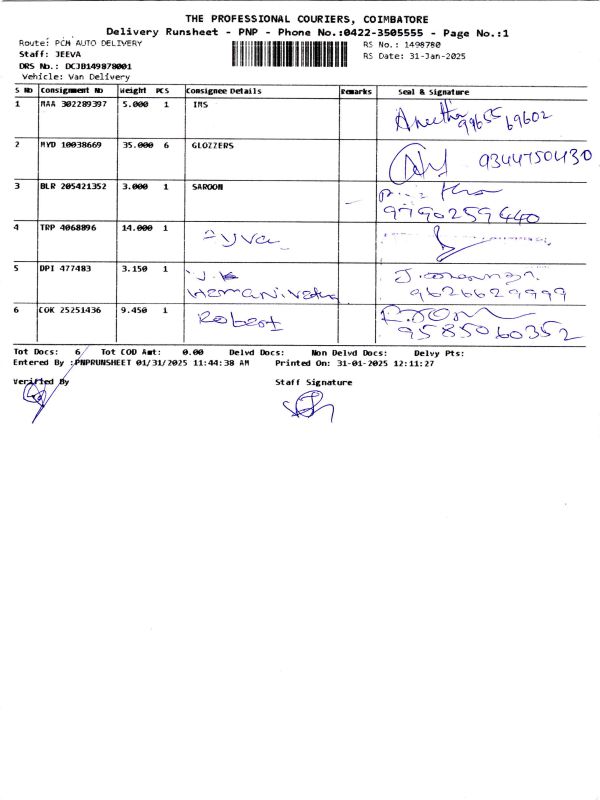 THE PROFESSIONAL COURIERS, COIMBATORE
Delivery Runsheet - PNP - Phone No.:0422-3505555 - Page No.:1
Route: PCM AUTO DELIVERY RS No.: 1498780
Staff: JEEVA RS Date: 31-Jan-2025
DRS No.: DCJB149878001
Vehicle: Van Delivery
S No Consignment No Weight PCS Consignee Details Remarks Seal & Signature
1 MAA 302289397 5.000 1 IMS Aneetha 99655 69602
2 MYD 10038669 35.000 6 GLOZZERS 9344750430
3 BLR 205421352 3.000 1 SAROON 9790259440
4 TRP 4068896 14.000 1
5 DPI 477483 3.150 1 9626629999
6 COK 25251436 9.450 1 Robert 9585060352
Tot Docs: 6 Tot COD Amt: 0.00 Delvd Docs: Non Delvd Docs: Delvy Pts:
Entered By :PNPRUNSHEET 01/31/2025 11:44:38 AM Printed On: 31-01-2025 12:11:27
Verified By Staff Signature